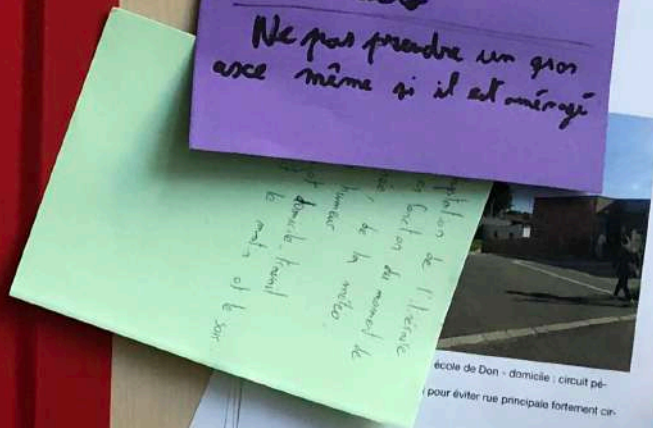 Ne pas prendre un gros
axe même si il est aménagé
de l'itinéraire
en fonction du moment de
de la météo
humeur
domicile-travail
le matin et le soir
école de Don - domicile : circuit pé-
pour éviter rue principale fortement cir-